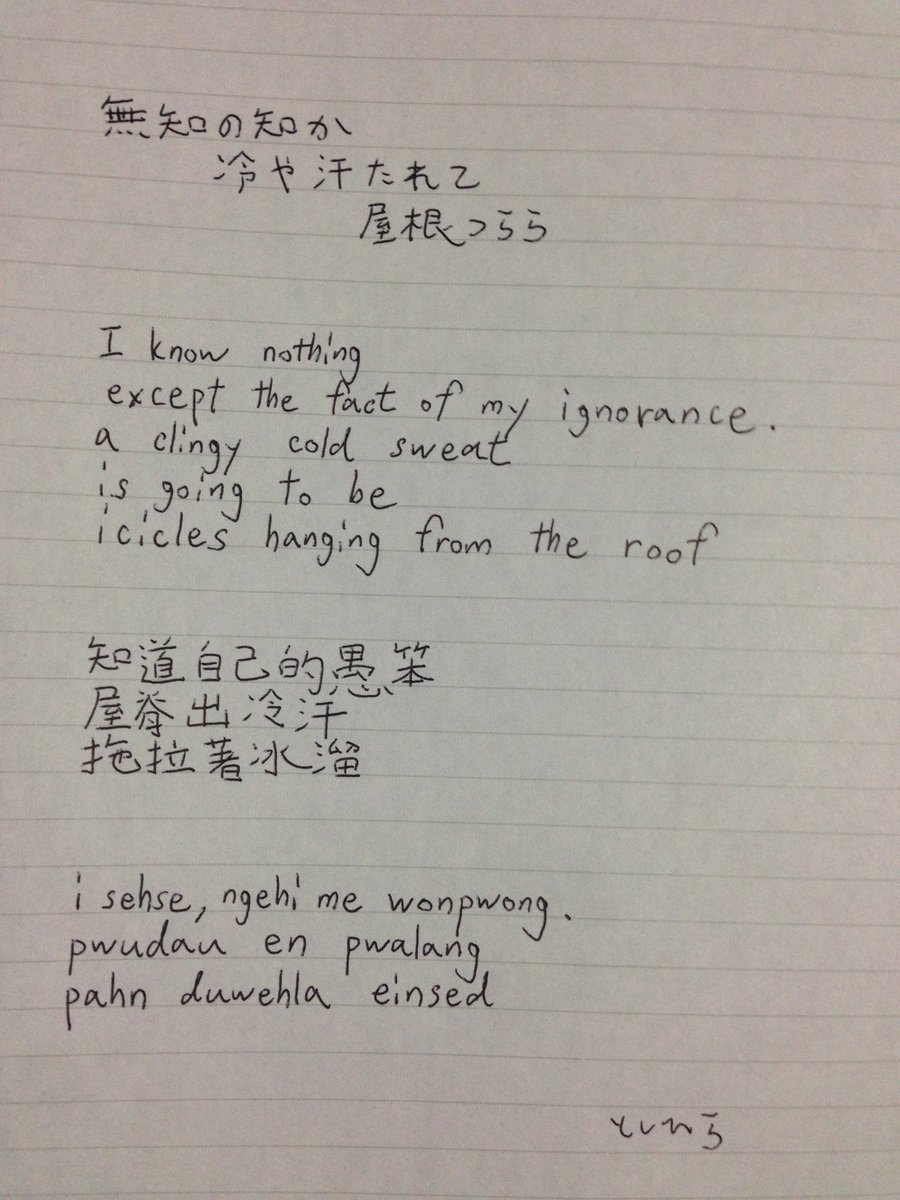 無知の知か
冷や汗たれて
屋根つらら
I know nothing
except the fact of my ignorance.
a clingy cold sweat
is going to be
icicles hanging from the roof
知道自己的愚笨
屋脊出冷汗
拖拉著冰溜
i sehse, ngehi me wonpwong.
pwudau en pwalang
pahn duwehla einsed